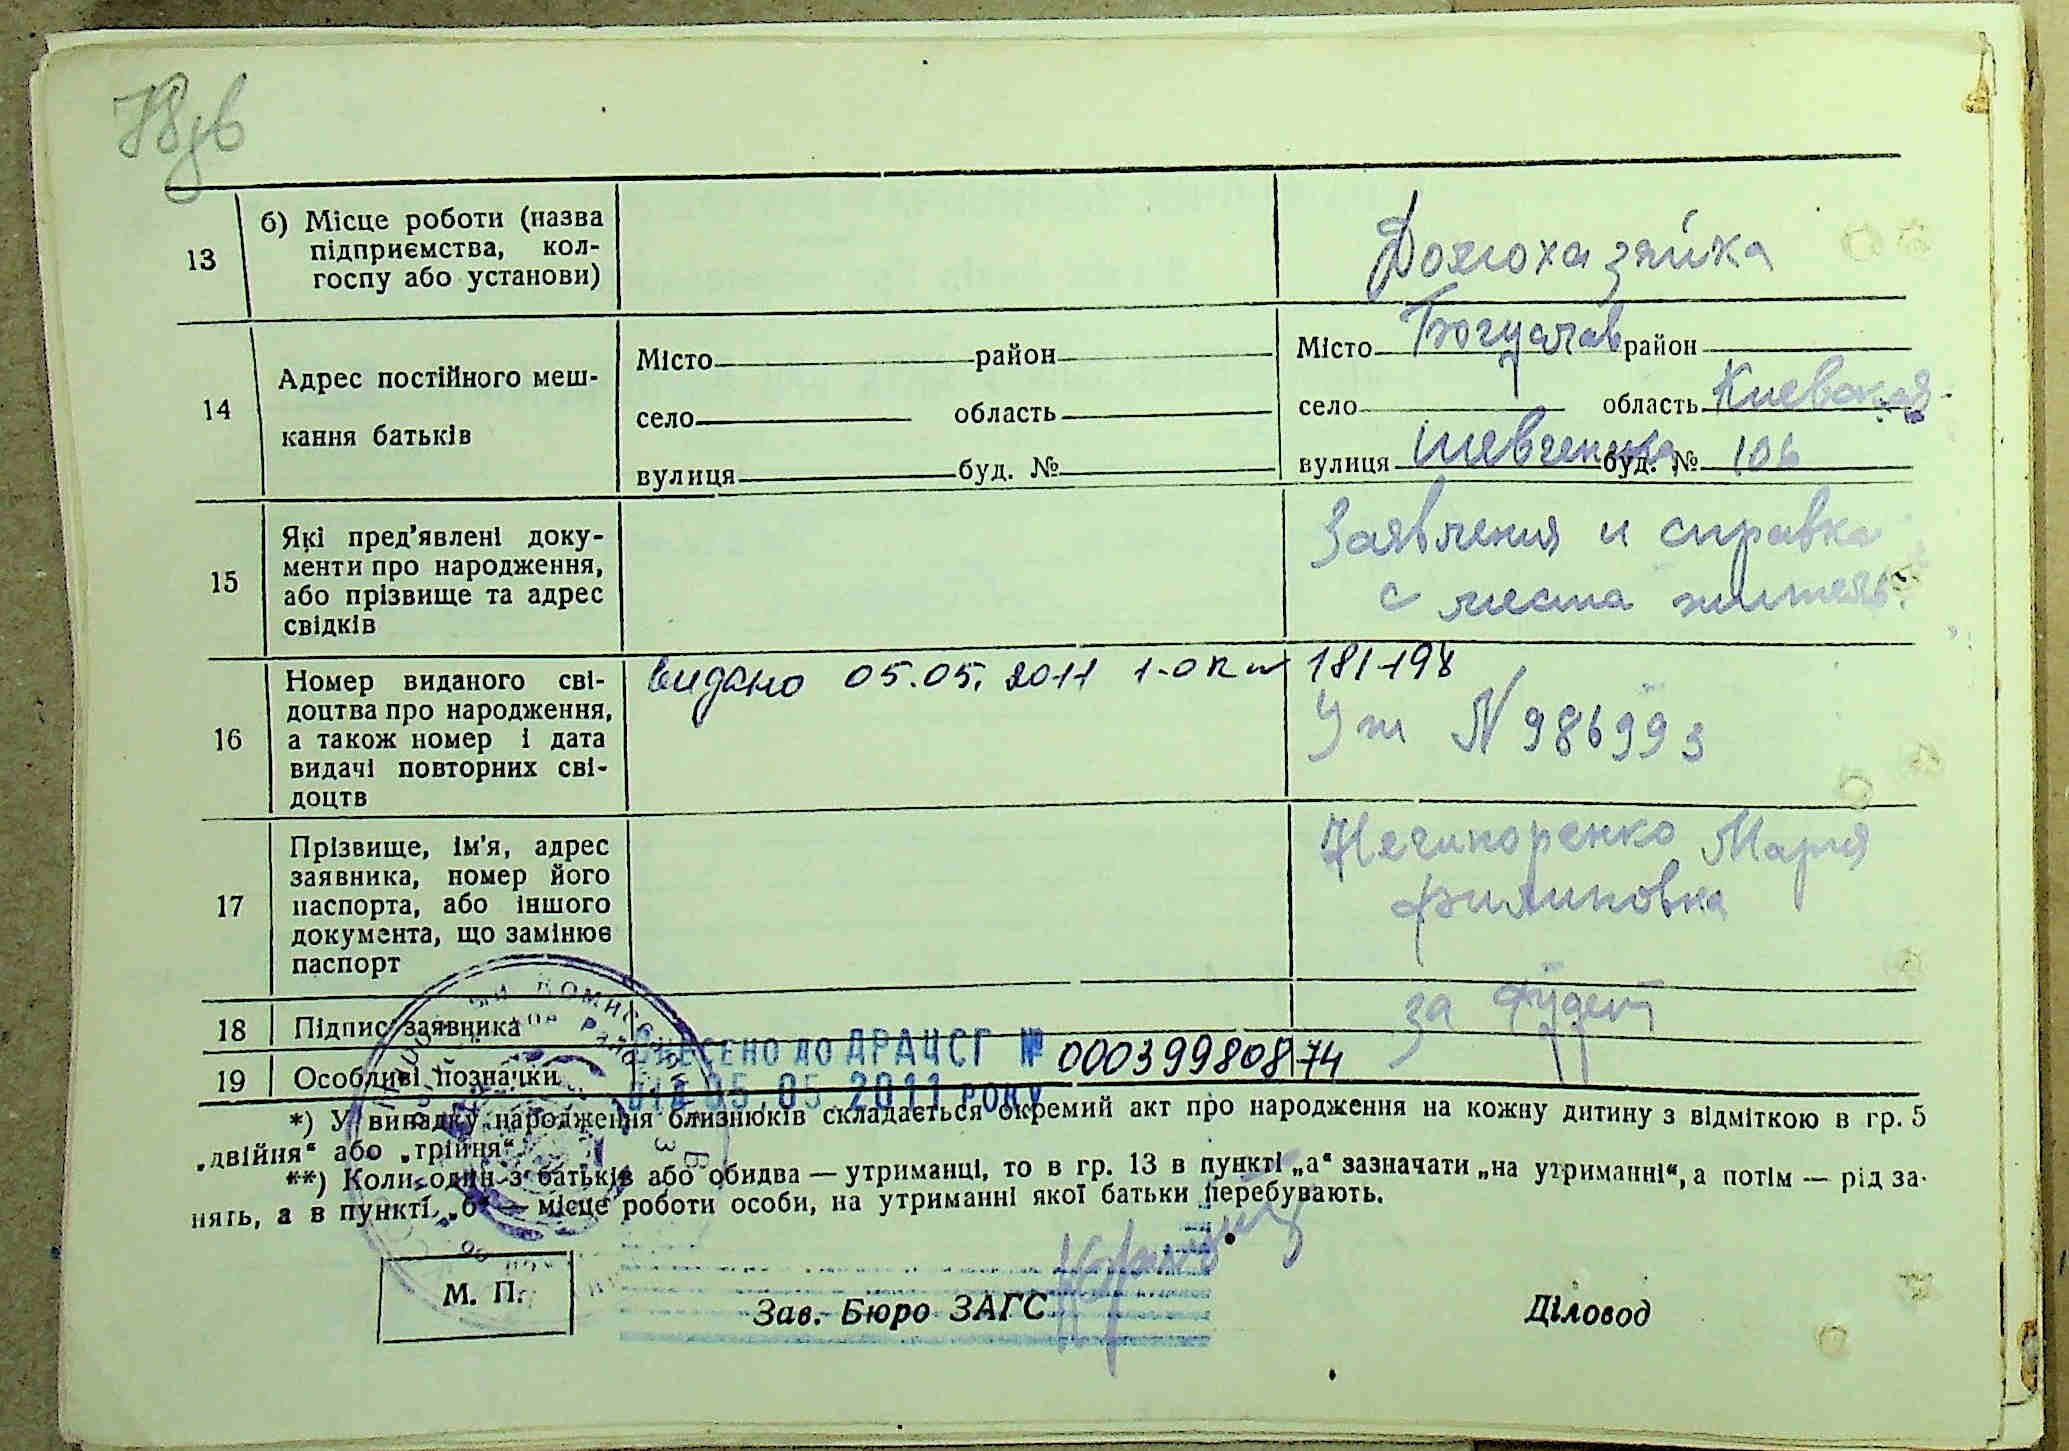 78зв
13
б) Місце роботи (назва
підприємства, кол-
госпу або установи)
Домохазяйка
14
Адрес постійного меш-
кання батьків
Місто район
село область
вулиця буд. №
Місто Богуслав район
село область Киевская
вулиця Шевченка буд. № 106
15
Які пред'явлені доку-
менти про народження,
або прізвище та адрес
свідків
Заявления и справка
с места жительс.
16
Номер виданого сві-
доцтва про народження,
а також номер і дата
видачі повторних сві-
доцтв
видано 05.05.2011 181198
N 986993
17
Прізвище, ім'я, адрес
заявника, номер його
паспорта, або іншого
документа, що замінює
паспорт
Нечипоренко Мария
Филиповна
18
Підпис заявника
за
19
Особливі позначки
ВНЕСЕНО ДО ДРАЦСГ № 00039980874
від 05.05.2011 РОКУ
*) У випадку народження близнюків складається окремий акт про народження на кожну дитину з відміткою в гр. 5
„двійня“ або „трійня“.
**) Коли один з батьків або обидва — утриманці, то в гр. 13 в пункті „а“ зазначати „на утриманні“, а потім — рід за-
нять, а в пункті „б“ — місце роботи особи, на утриманні якої батьки перебувають.
М. П.
Зав. Бюро ЗАГС
Діловод